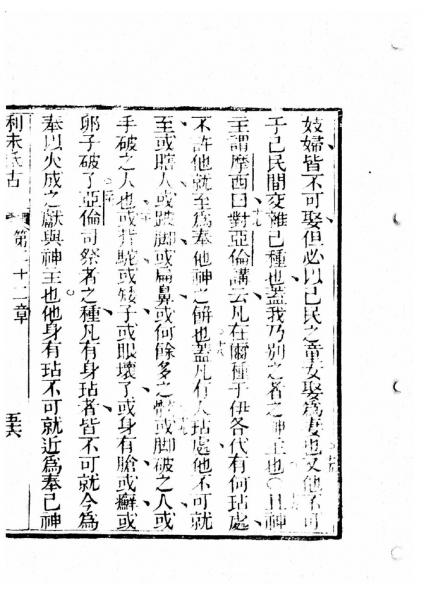 妓婦皆不可娶但必以己民之童女娶為妻也又他不可
于己民間交雜己種也蓋我乃別之者之神主也〇且神
主謂摩西曰對亞倫講云凡在爾種于伊各代有何玷處
不許他就至為奉他神之餅也蓋凡有人玷處他不可就
至或瞎人或跛脚或扁鼻或何餘多之 或脚破之人或
手破之人也或背駝或矮子或眼壞了或身有 或癬或
卵子破了亞倫司祭者之種凡有身玷者皆不可就今為
奉以火成之獻與神主也他身有玷不可就近為奉己神
利未氏古 第二十二章 五六